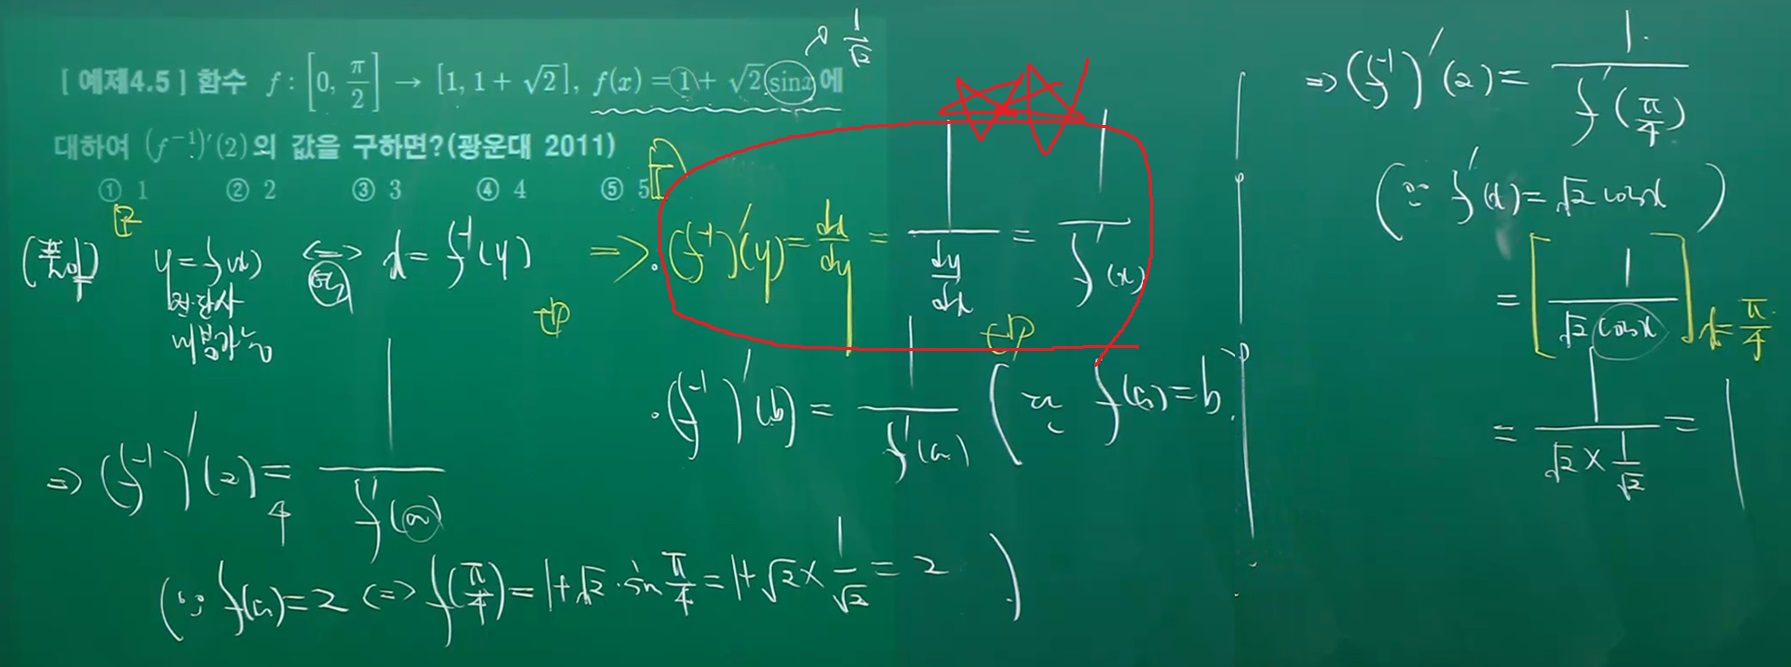 [ 예제4.5 ] 함수 f : [0, π/2] → [1, 1 + √2], f(x) = 1 + √2 sinx 에
1/√2
대하여 (f⁻¹)′(2)의 값을 구하면?(광운대 2011)
① 1 ② 2 ③ 3 ④ 4 ⑤ 5
(풀이) y=f(x) ⟺ x=f⁻¹(y) ⇒ ·(f⁻¹)′(y)= dx/dy = 1/(dy/dx) = 1/f′(x)
전단사
미분가능
·(f⁻¹)′(b) = 1/f′(a) (∵ f(a)=b.
⇒ (f⁻¹)′(2) = 1/f′(a)
(∵ f(a)=2 ⟺ f(π/4)=1+√2·sin π/4 = 1+√2 × 1/√2 = 2 )
⇒ (f⁻¹)′(2) = 1/f′(π/4)
(∵ f′(x)=√2 cosx )
= [1/(√2 cosx)] x=π/4
= 1/(√2 × 1/√2) = 1